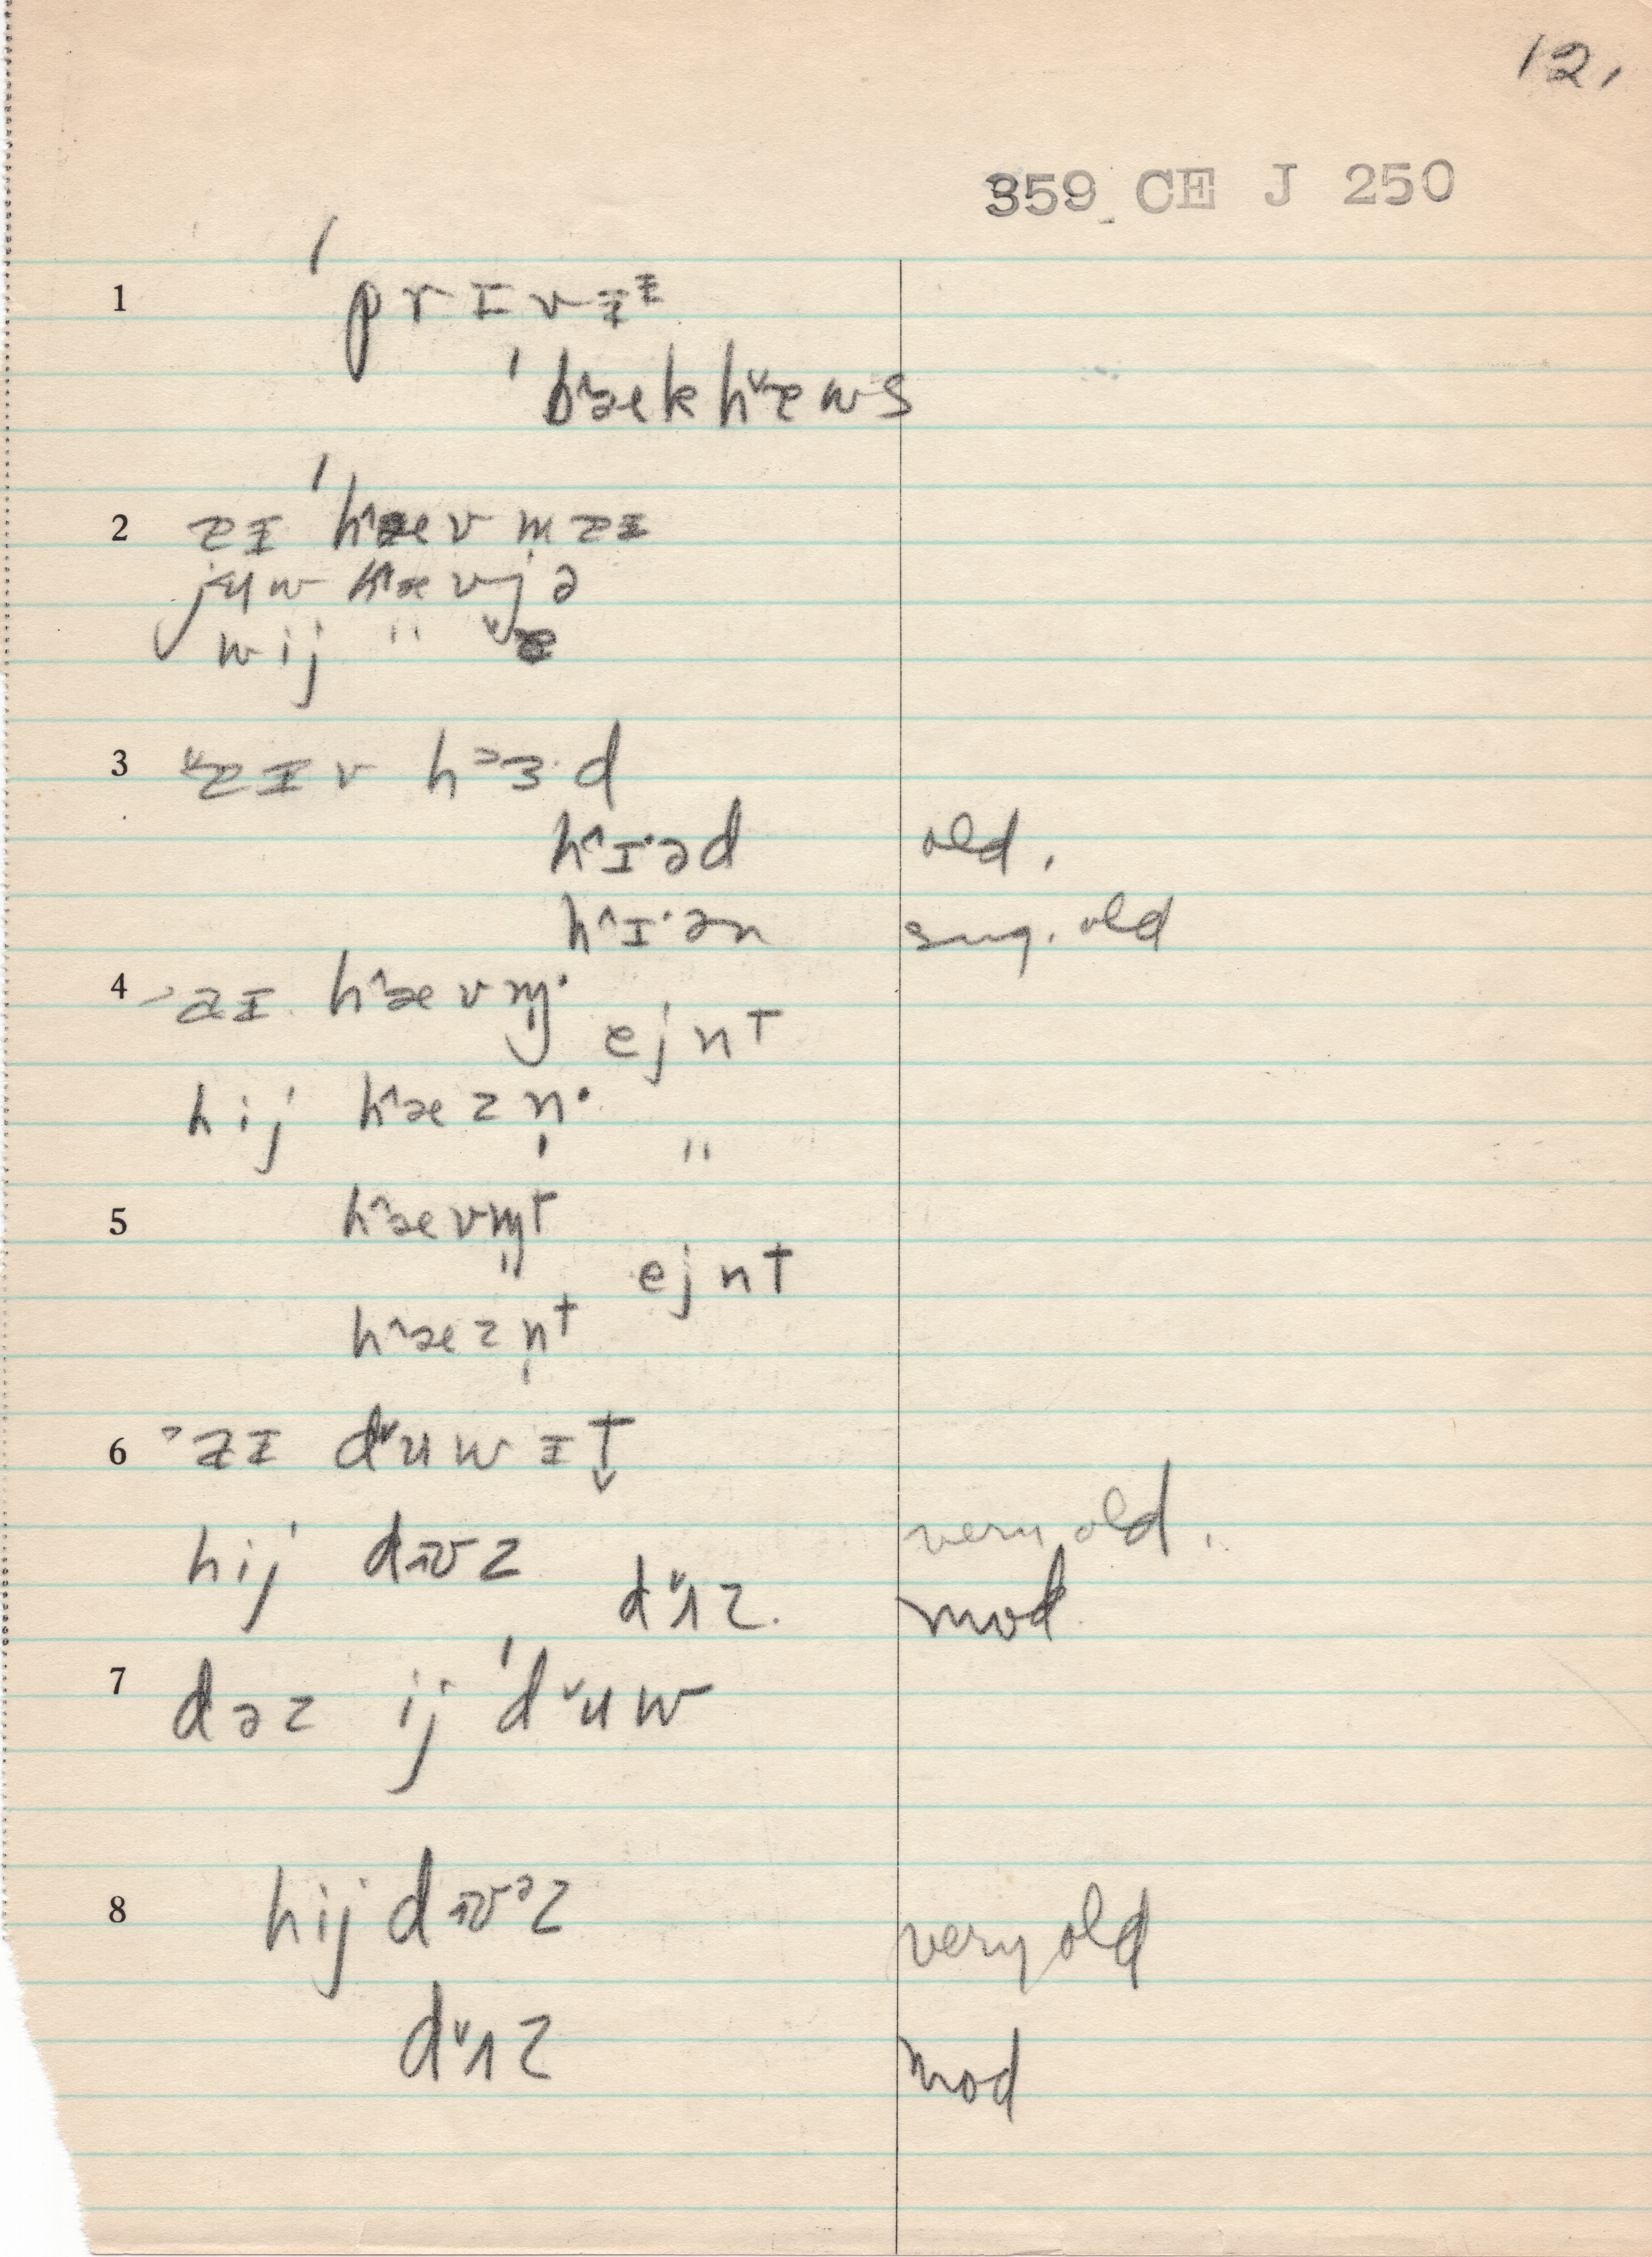 12.
359 CE J 250
1 ˈprɪvɪᶻ
ˈbæekhæws
2 aɪ ˈhæev m aɪ
juw hæev jə
wij "
3 aɪv hᵊɜ·d
h^ɪ·əd old.
h^ɪ·ən sug. old
4 aɪ h^æevn̩·
ejnt
hij h^æezn̩· "
5 h^æevn̩t
ejnt
h^æezn̩t
6 aɪ dˇuwɪt̬
hij dɪʊz very old.
dˇʌz. mod
7 dəz ij ˈdˇuw
8 hij dɪʊᵊz very old
dˇʌz mod